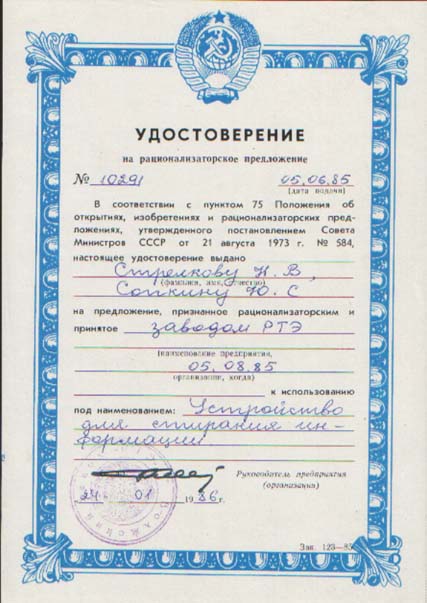 УДОСТОВЕРЕНИЕ
на рационализаторское предложение
№ 10291 05.06.85
(дата подачи)
В соответствии с пунктом 75 Положения об
открытиях, изобретениях и рационализаторских пред-
ложениях, утвержденного постановлением Совета
Министров СССР от 21 августа 1973 г. № 584,
настоящее удостоверение выдано
Стрелкову Н. В,
(фамилия, имя, отчество)
Сопкину Ю. С
на предложение, признанное рационализаторским и
принятое заводом РТЭ
(наименование предприятия,
05.08.85
организации, когда)
к использованию
под наименованием: Устройство
для стирания ин-
формации
Руководитель предприятия
(организации)
24 01 1986г.
Зак. 123—85